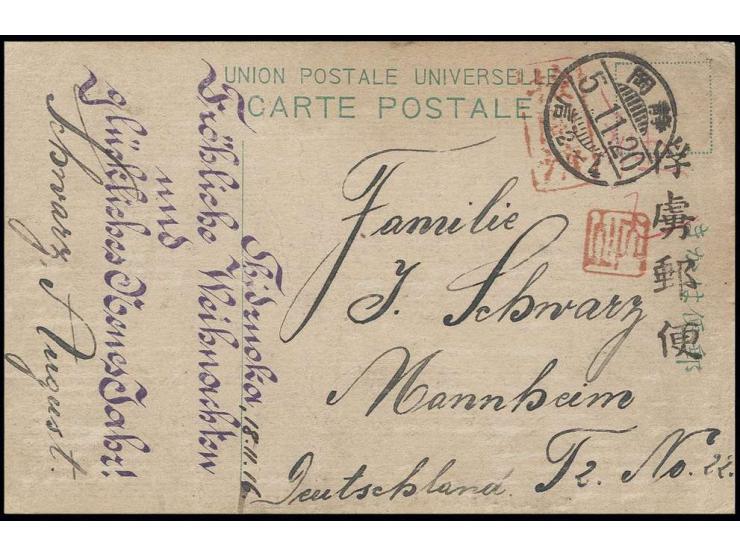 UNION POSTALE UNIVERSELLE
CARTE POSTALE
岡静
5.11.20
俘虜郵便
Familie
J. Schwarz
Mannheim
Deutschland. T2. No. 22.
Shidzuoka, 18.11.16
Fröhliche Weihnachten
und
glückliches Neues Jahr!
Schwarz, August.